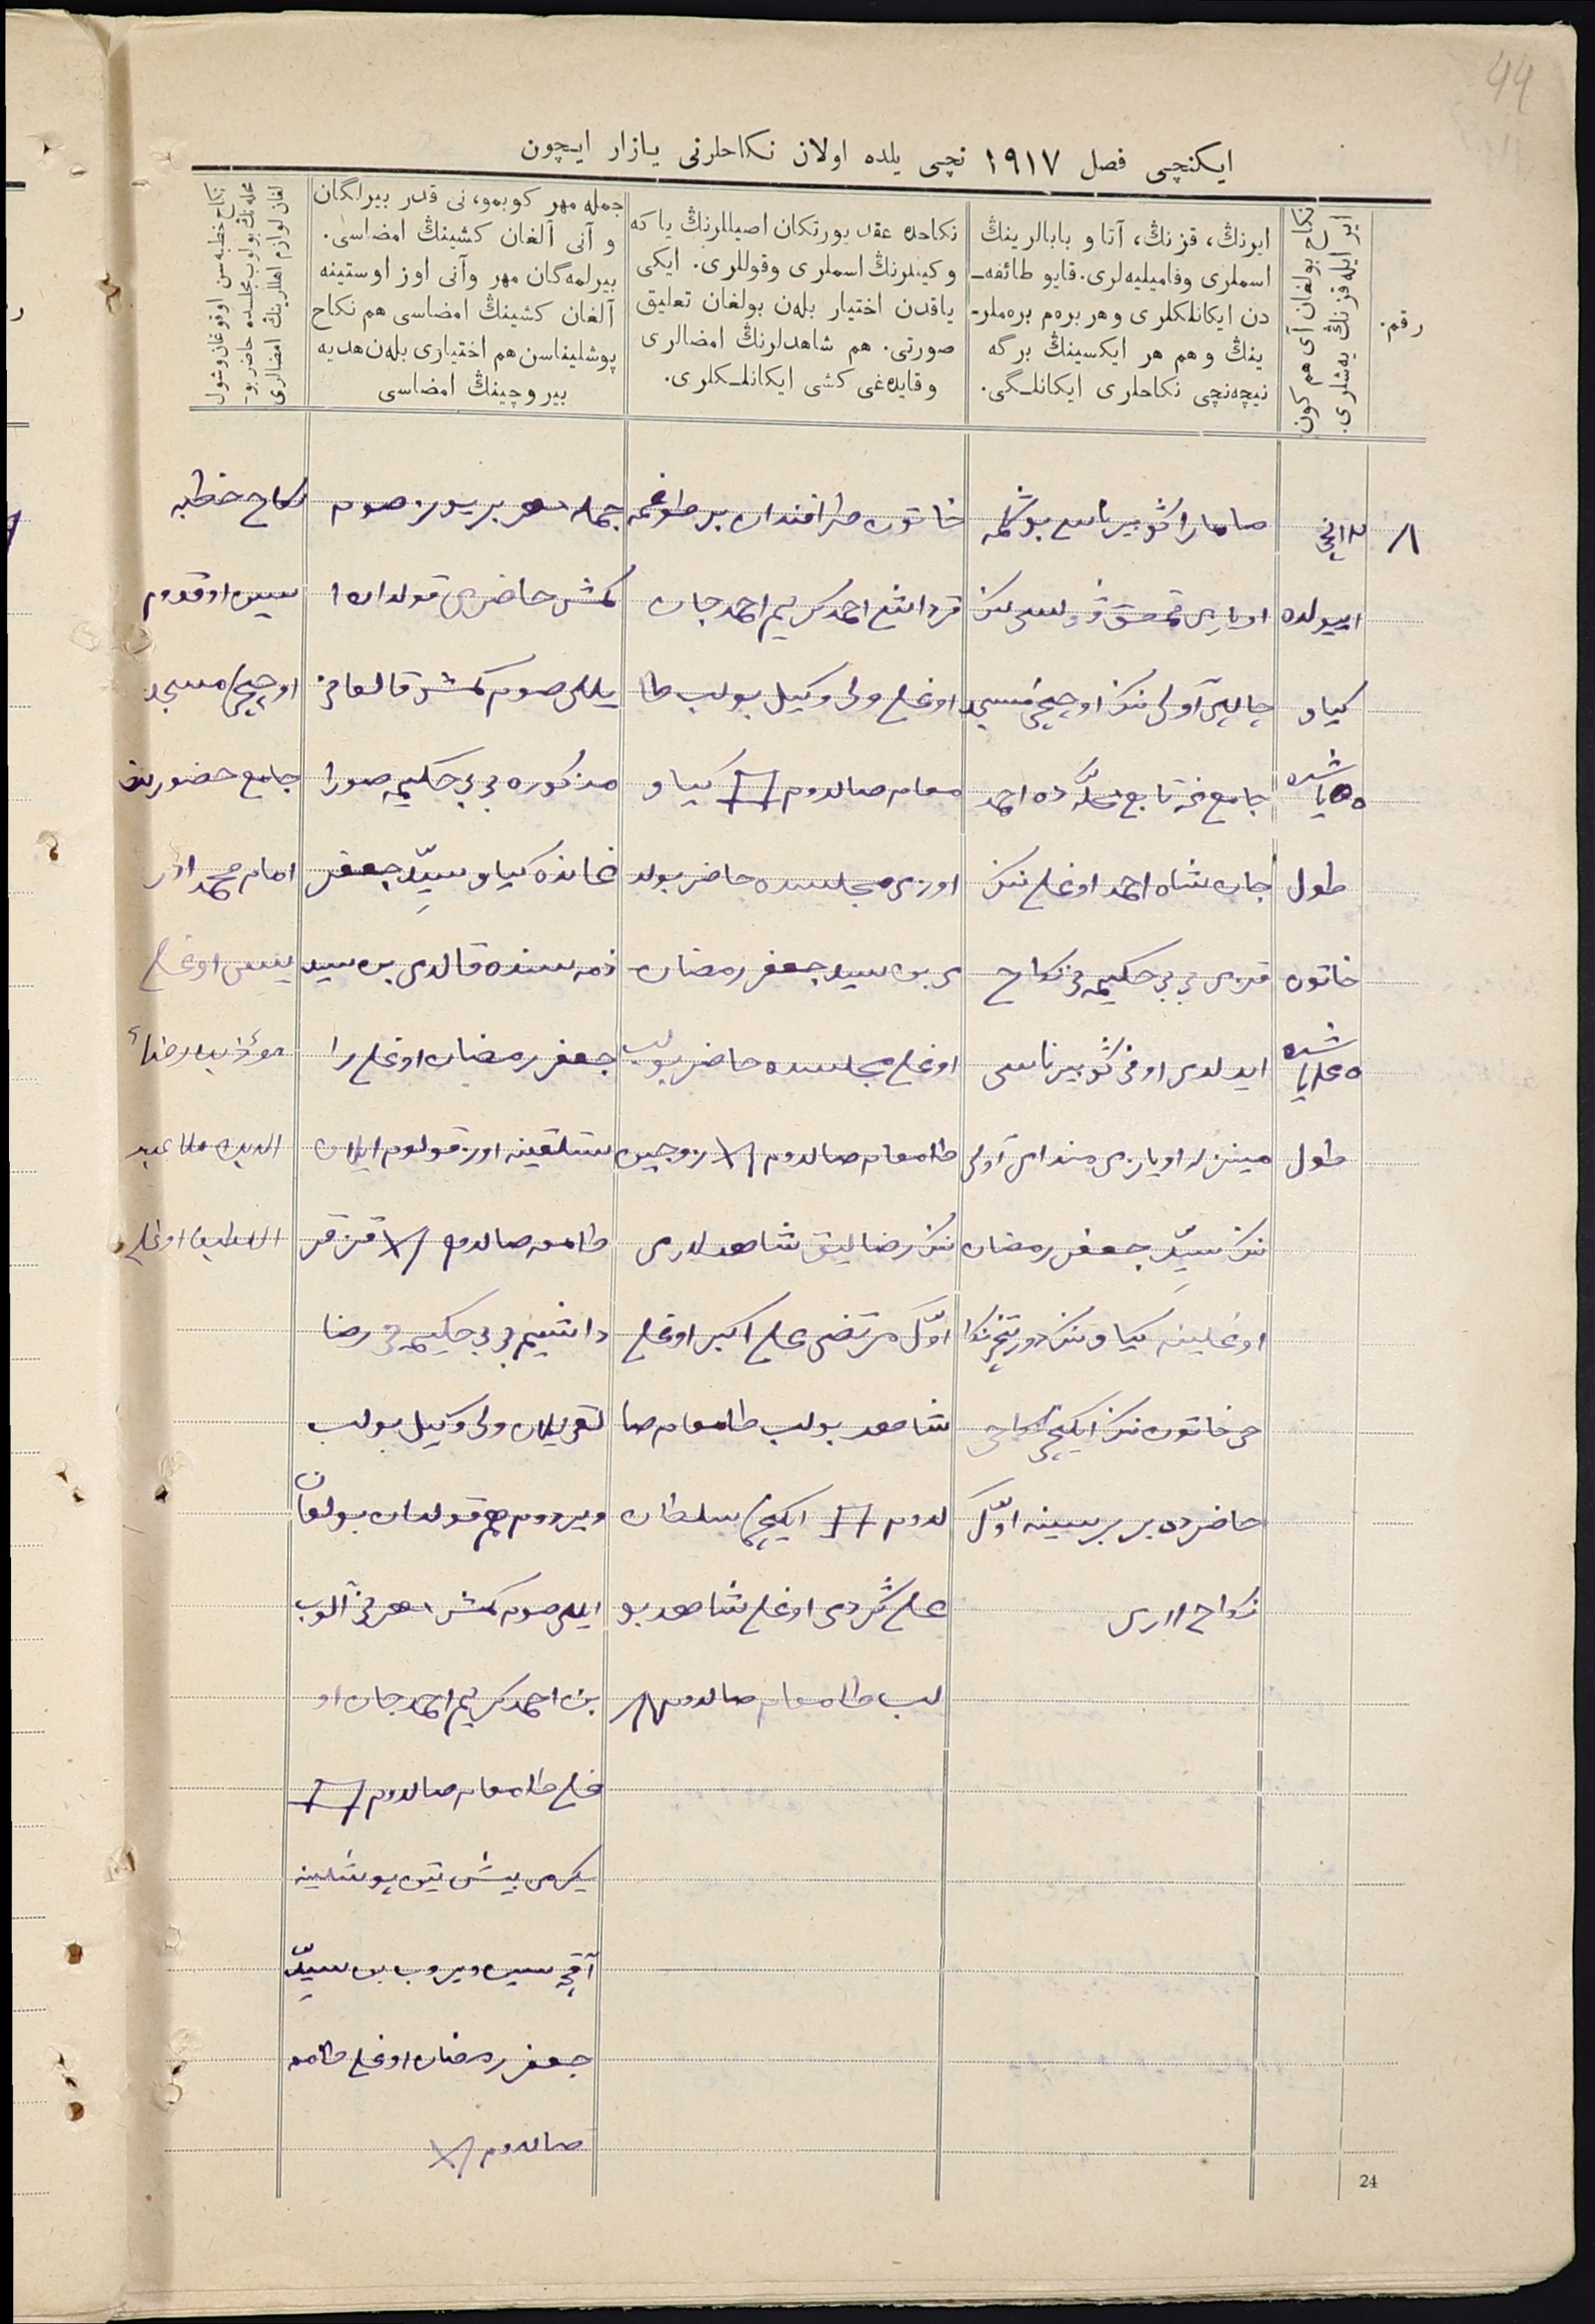 44
ایکنچی فصل ١٩١٧ نچی یلده اولان نکاحلرنی یازار ایچون
رقم.
نکاح بولغان آی هم کون
ایر ایله قزنڭ یه‌شلری.
ایرنڭ، قزنڭ، آتا و بابالرینڭ
اسملری وفامیلیه‌لری. قایو طائفه‌ـ
دن ایکانلکلری و هر بره‌م بره‌ملرـ
ینڭ و هم هر ایکسینڭ برگه
نیچه‌نچی نکاحلری ایکانلـگی.
نکاحده عقد یورتکان اصیللرنڭ یا که
وکیللرنڭ اسملری وقوللری. ایکی
یاقدن اختیار بله‌ن بولغان تعلیق
صورتی. هم شاهدلرنڭ امضالری
وقایده‌غی کشی ایکانلـکلری.
جمله مهر کوبمو، نی قدر بیرلگان
و آنی آلغان کشینڭ امضاسی.
بیرلمه‌گان مهر وآنی اوز اوستینه
آلغان کشینڭ امضاسی هم نکاح
پوشلیناسن هم اختیاری بله‌ن هدیه
بیروچینڭ امضاسی
نکاح خطبه‌سن اوقوغان وشول
محله‌نڭ بولوب مجلسده حاضر بوـ
لغان لوازم اهللرینڭ امضالری
٨
اییولده
کیاو
٥٥ یاشده
طول
خاتون
یاشده
طول
صامارا گوبیرناسی بوگلمه
اویازی
چالپی آولی ننڭ اوچنچی مسجد
جامع نی تابع محله‌ده احمد
جان شاه احمد اوغلی ننڭ
قزی بی بی حکیمه نی نکاح
ایدلدی اوفی گوبیرناسی
مینزله اویازی منداي آولی
ننڭ سیّد جعفر رمضان
اوغلینه کیاو ننڭ دورتنچی نکا
حی خاتون ننڭ ایکنچی نکاحی
حاضرده بر برسینه اوّل
نکاح لاری
خاتون طرافندان بر طوغمه
قرداشی احمد کریم احمد جان
اوغلی ولی وکیل بولب طا
مغام صالدوم کیاو
اوزی مجلسده حاضر بولد
ی بن سید جعفر رمضان
اوغلی مجلسده حاضر بولب
طامغام صالدوم زوجین
ننڭ رضالیق شاهدلاری
اوّل مرتضی علی اکبر اوغلی
شاهد بولب طامغام صا
لدوم ایکنچی سلطان
علی گردی اوغلی شاهد بو
لب طامغام صالدوم
جمله مهر بر یوز صوم
کمش حاضری قولدان ا
یللی صوم کمش قالغانی
مذکوره بی بی حکیمه صورا
غانده کیاو سیّد جعفر
ذمه سنده قالدی بن سید
جعفر رمضان اوغلی را
ستلقینه اوز قولوم ایلان
طامغه صالدوم قز قر
داشیم بی بی حکیمه نی رضا
لقی یلان ولی وکیل بولب
ویردوم هم قولدان بولغان
ایللی صوم کمش مهرنی آلوب
بن احمد کریم احمد جان او
غلی طامغام صالدوم
یکرمی بیش تین پوشلینه
آقچه سین ویروب بن سیّد
جعفر رمضان اوغلی طامغه
صالدوم
نکاح خطبه
سین اوقودم
اوچنچی مسجد
جامع حضورینده
امام محمد
یینس اوغلی
مؤذن بهاء
الدین ملا عبد
اللطیف اوغلی
24